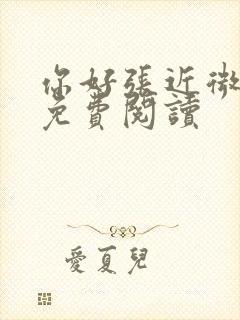 你好張近微
免費閱讀
愛夏兒